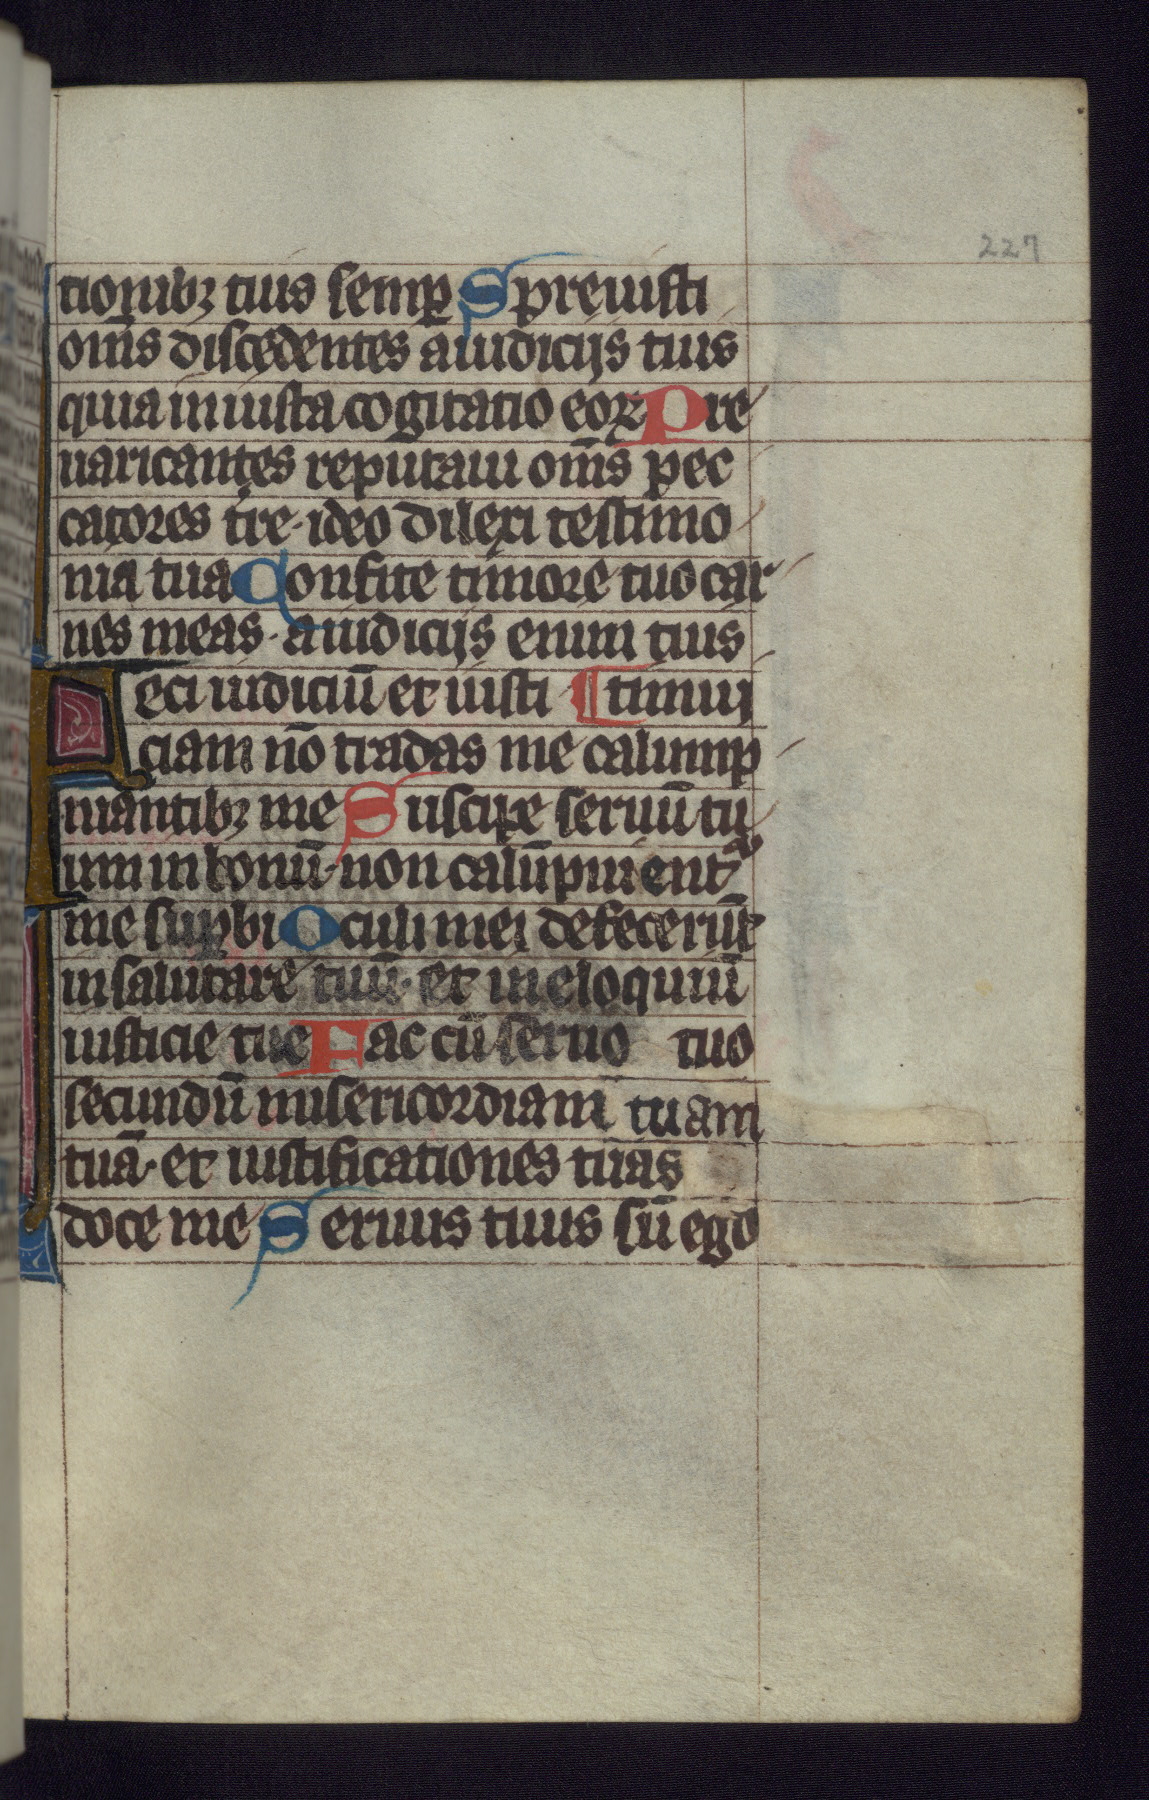 227
tionibꝫ tuis semꝑ Spreuisti
om̄s discedentes aiudicijs tuis
quia iniusta cogitatio eoꝝ Pre
uaricantes reputaui om̄s pec
catores tr̄e· ideo dilexi testimo
nia tua Confite timore tuo car
nes meas· aiudicijs enim tuis
Feci iudiciū et iusti ¶ timui
ciam nō tradas me calump
niantibꝫ me Suscipe seruū tu
um in bonū· non calūpnient᷑
me suꝑbi Oculi mei defecerūt
in salutare tuū· et in eloquiū
iusticie tue Fac cū seruo tuo
secundū misericordiam tuam
tuā· et iustificationes tuas
doce me Seruus tuus sū ego